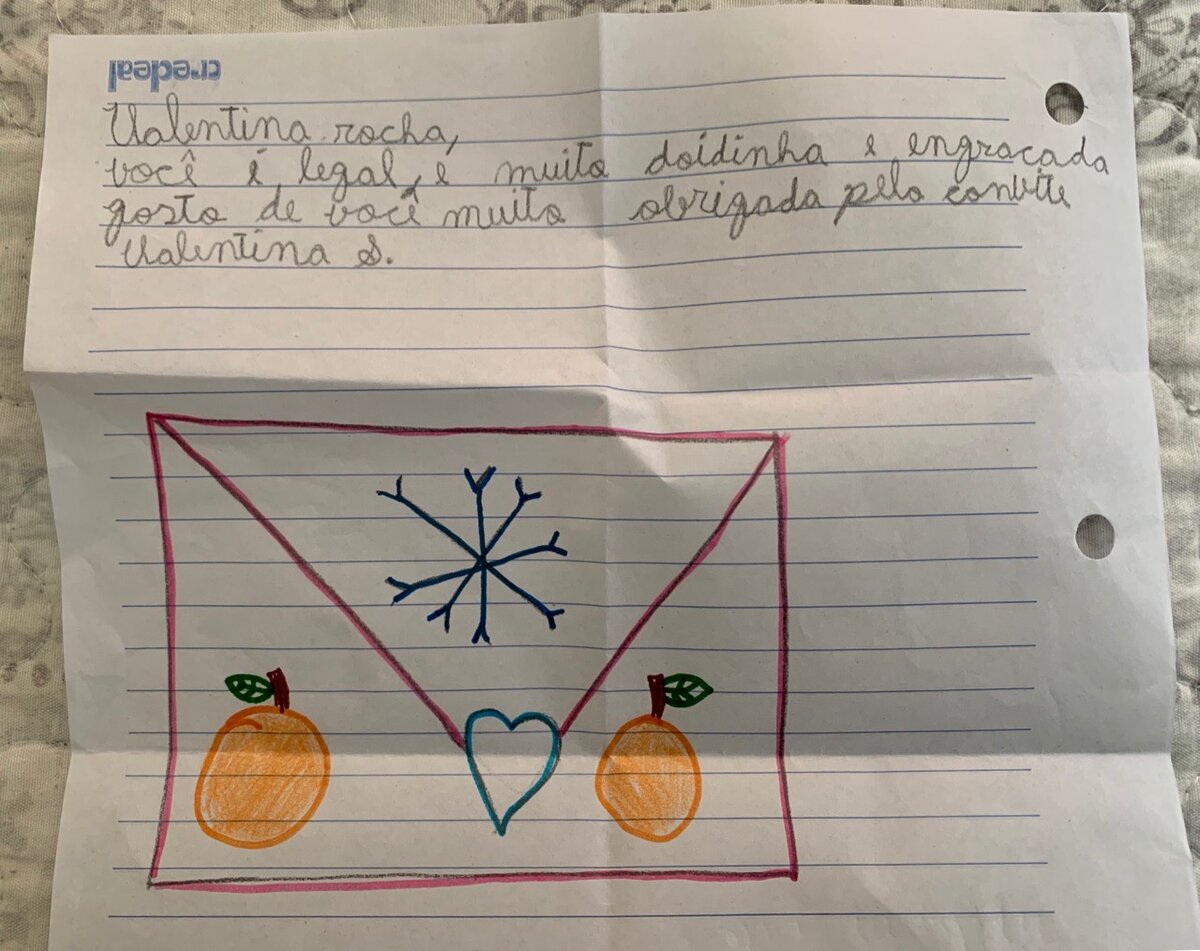 credeal
Valentina rocha,
você é legal, é muito doidinha e engraçada
gosto de você muito obrigada pelo convite
Valentina S.